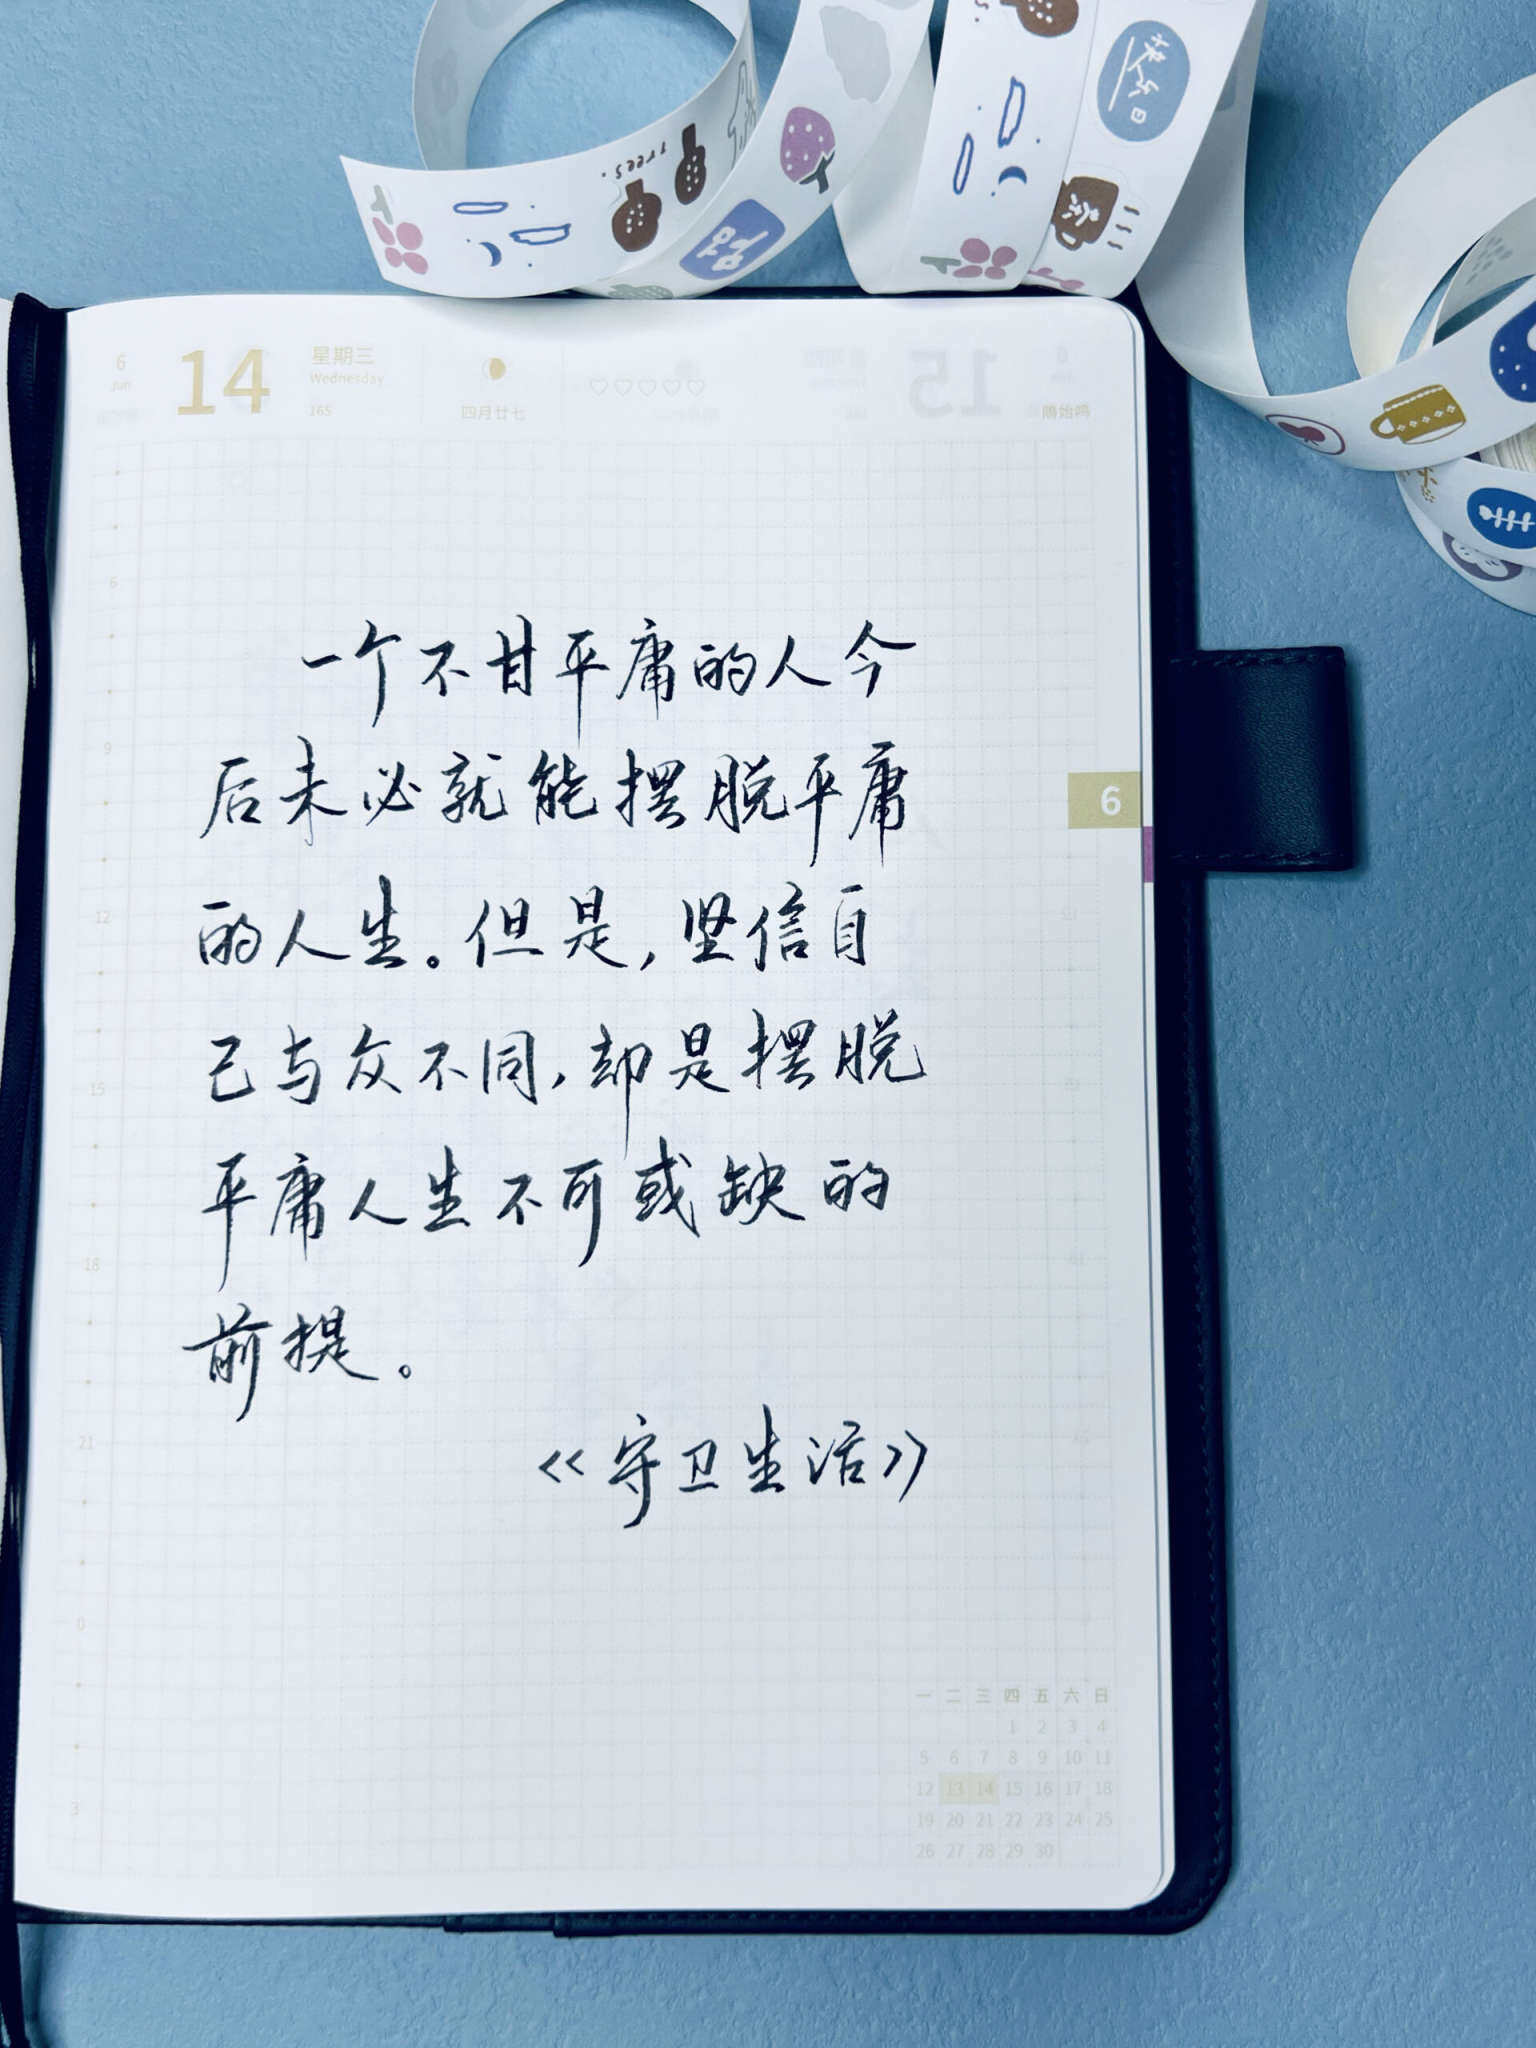 6
Jun
14
星期三
Wednesday
165
四月廿七
鵙始鸣
6
9
12
15
18
21
0
3
6
一个不甘平庸的人今
后未必就能摆脱平庸
的人生。但是,坚信自
己与众不同,却是摆脱
平庸人生不可或缺的
前提。
《守卫生活》
一 二 三 四 五 六 日
1 2 3 4
5 6 7 8 9 10 11
12 13 14 15 16 17 18
19 20 21 22 23 24 25
26 27 28 29 30
trees.